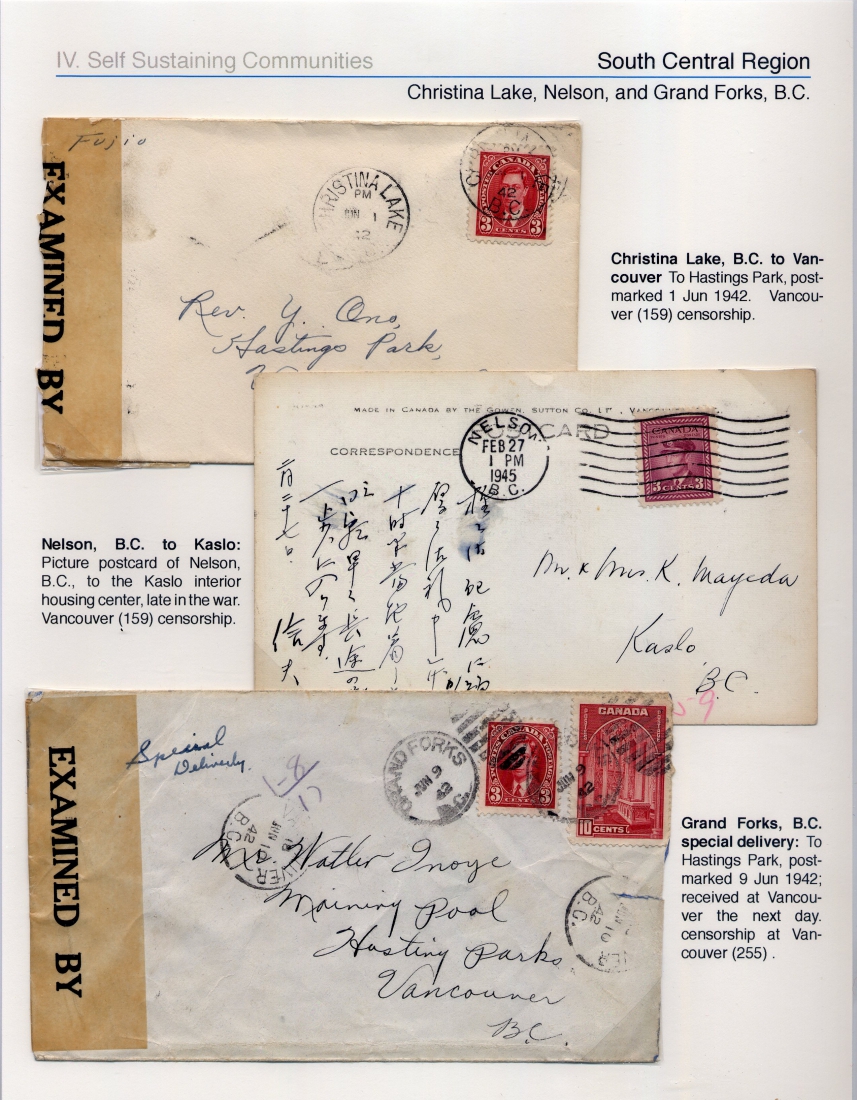 IV. Self Sustaining Communities
South Central Region
Christina Lake, Nelson, and Grand Forks, B.C.
Fujio
EXAMINED BY
CHRISTINA LAKE
PM
JUN 1
42
42
B.C.
POSTES CANADA POSTAGE
3 CENTS 3
Rev. Y. Ono,
Hastings Park,
Christina Lake, B.C. to Van-
couver To Hastings Park, post-
marked 1 Jun 1942. Vancou-
ver (159) censorship.
MADE IN CANADA BY THE GOWEN, SUTTON CO. LTD., VANCOUVER
CARD
CORRESPONDENCE
NELSON
FEB 27
1 PM
1945
B.C.
CANADA
3 CENTS 3
二月二十七日
Mr. & Mrs. K. Mayeda
Kaslo
B.C.
Nelson, B.C. to Kaslo:
Picture postcard of Nelson,
B.C., to the Kaslo interior
housing center, late in the war.
Vancouver (159) censorship.
EXAMINED BY
Special
Delivery.
GRAND FORKS
JUN 9
42
B.C.
POSTES CANADA POSTAGE
3 CENTS 3
CANADA
10 CENTS
JUN 9
42
JUN 10
42
B.C.
Mr Walter Inoye
Morning Pool
Hasting Parks
Vancouver
B.C.
JUN 10
42
B.C.
Grand Forks, B.C.
special delivery: To
Hastings Park, post-
marked 9 Jun 1942;
received at Vancou-
ver the next day.
censorship at Van-
couver (255) .